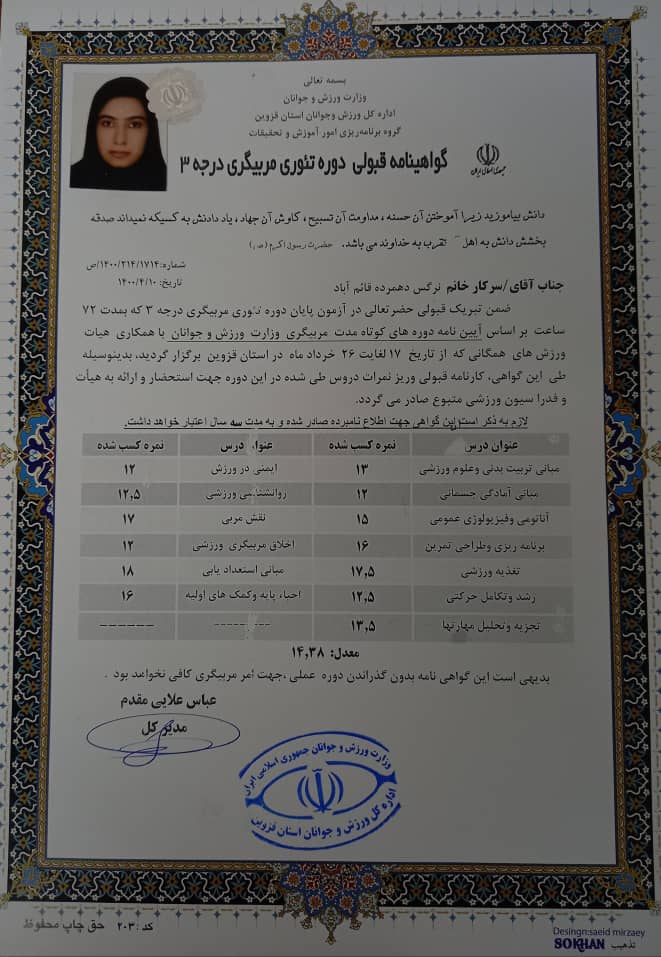 بسمه تعالی
وزارت ورزش و جوانان
اداره کل ورزش وجوانان استان قزوین
گروه برنامه‌ریزی امور آموزش و تحقیقات
جمهوری اسلامی ایران
گواهینامه قبولی دوره تئوری مربیگری درجه ۳
دانش بیاموزید زیرا آموختن آن حسنه، مداومت آن تسبیح، کاوش آن جهاد، یاد دادنش به کسیکه نمیداند صدقه
بخشش دانش به اهل تقرب به خداوند می باشد. حضرت رسول اکرم (ص)
شماره: ۱۴۰۰/۲۱۴/۱۷۱۴/ص
تاریخ: ۱۴۰۰/۴/۱۰
جناب آقای/سرکار خانم نرگس دهمرده قائم آباد
ضمن تبریک قبولی حضرتعالی در آزمون پایان دوره تئوری مربیگری درجه ۳ که بمدت ۷۲
ساعت بر اساس آیین نامه دوره های کوتاه مدت مربیگری وزارت ورزش و جوانان با همکاری هیات
ورزش های همگانی که از تاریخ ۱۷ لغایت ۲۶ خرداد ماه در استان قزوین برگزار گردید، بدینوسیله
طی این گواهی، کارنامه قبولی وریز نمرات دروس طی شده در این دوره جهت استحضار و ارائه به هیأت
و فدراسیون ورزشی متبوع صادر می گردد.
لازم به ذکر است این گواهی جهت اطلاع نامبرده صادر شده و به مدت سه سال اعتبار خواهد داشت.
عنوان درس نمره کسب شده عنوان درس نمره کسب شده
مبانی تربیت بدنی وعلوم ورزشی ۱۳ ایمنی در ورزش ۱۲
مبانی آمادگی جسمانی ۱۲ روانشناسی ورزشی ۱۲,۵
آناتومی وفیزیولوژی عمومی ۱۵ نقش مربی ۱۷
برنامه ریزی وطراحی تمرین ۱۶ اخلاق مربیگری ورزشی ۱۲
تغذیه ورزشی ۱۷,۵ مبانی استعداد یابی ۱۸
رشد وتکامل حرکتی ۱۲,۵ احیاء پایه وکمک های اولیه ۱۶
تجزیه وتحلیل مهارتها ۱۳,۵ -------- ------
معدل: ۱۴,۳۸
بدیهی است این گواهی نامه بدون گذراندن دوره عملی ،جهت امر مربیگری کافی نخواهد بود .
عباس علایی مقدم
مدیر کل
وزارت ورزش و جوانان جمهوری اسلامی ایران
اداره کل ورزش و جوانان استان قزوین
کد: ۲۰۳ حق چاپ محفوظ
Desingn:saeid mirzaey
تذهیب SOKHAN